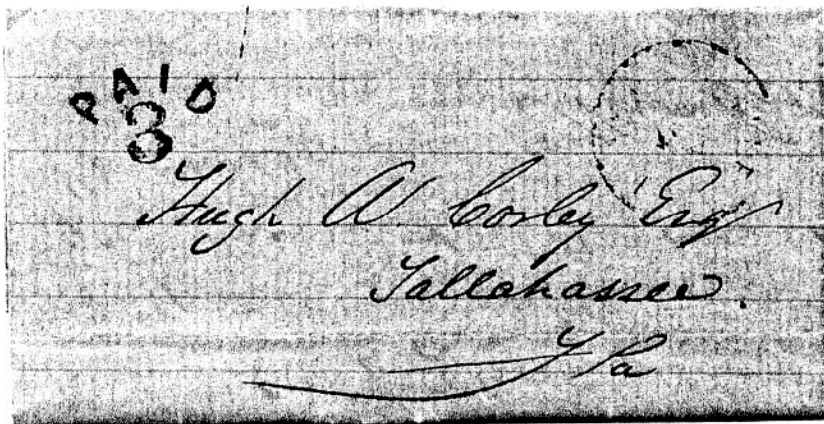 PAID
3
Hugh A. Corley Esqr
Tallahassee.
Fla